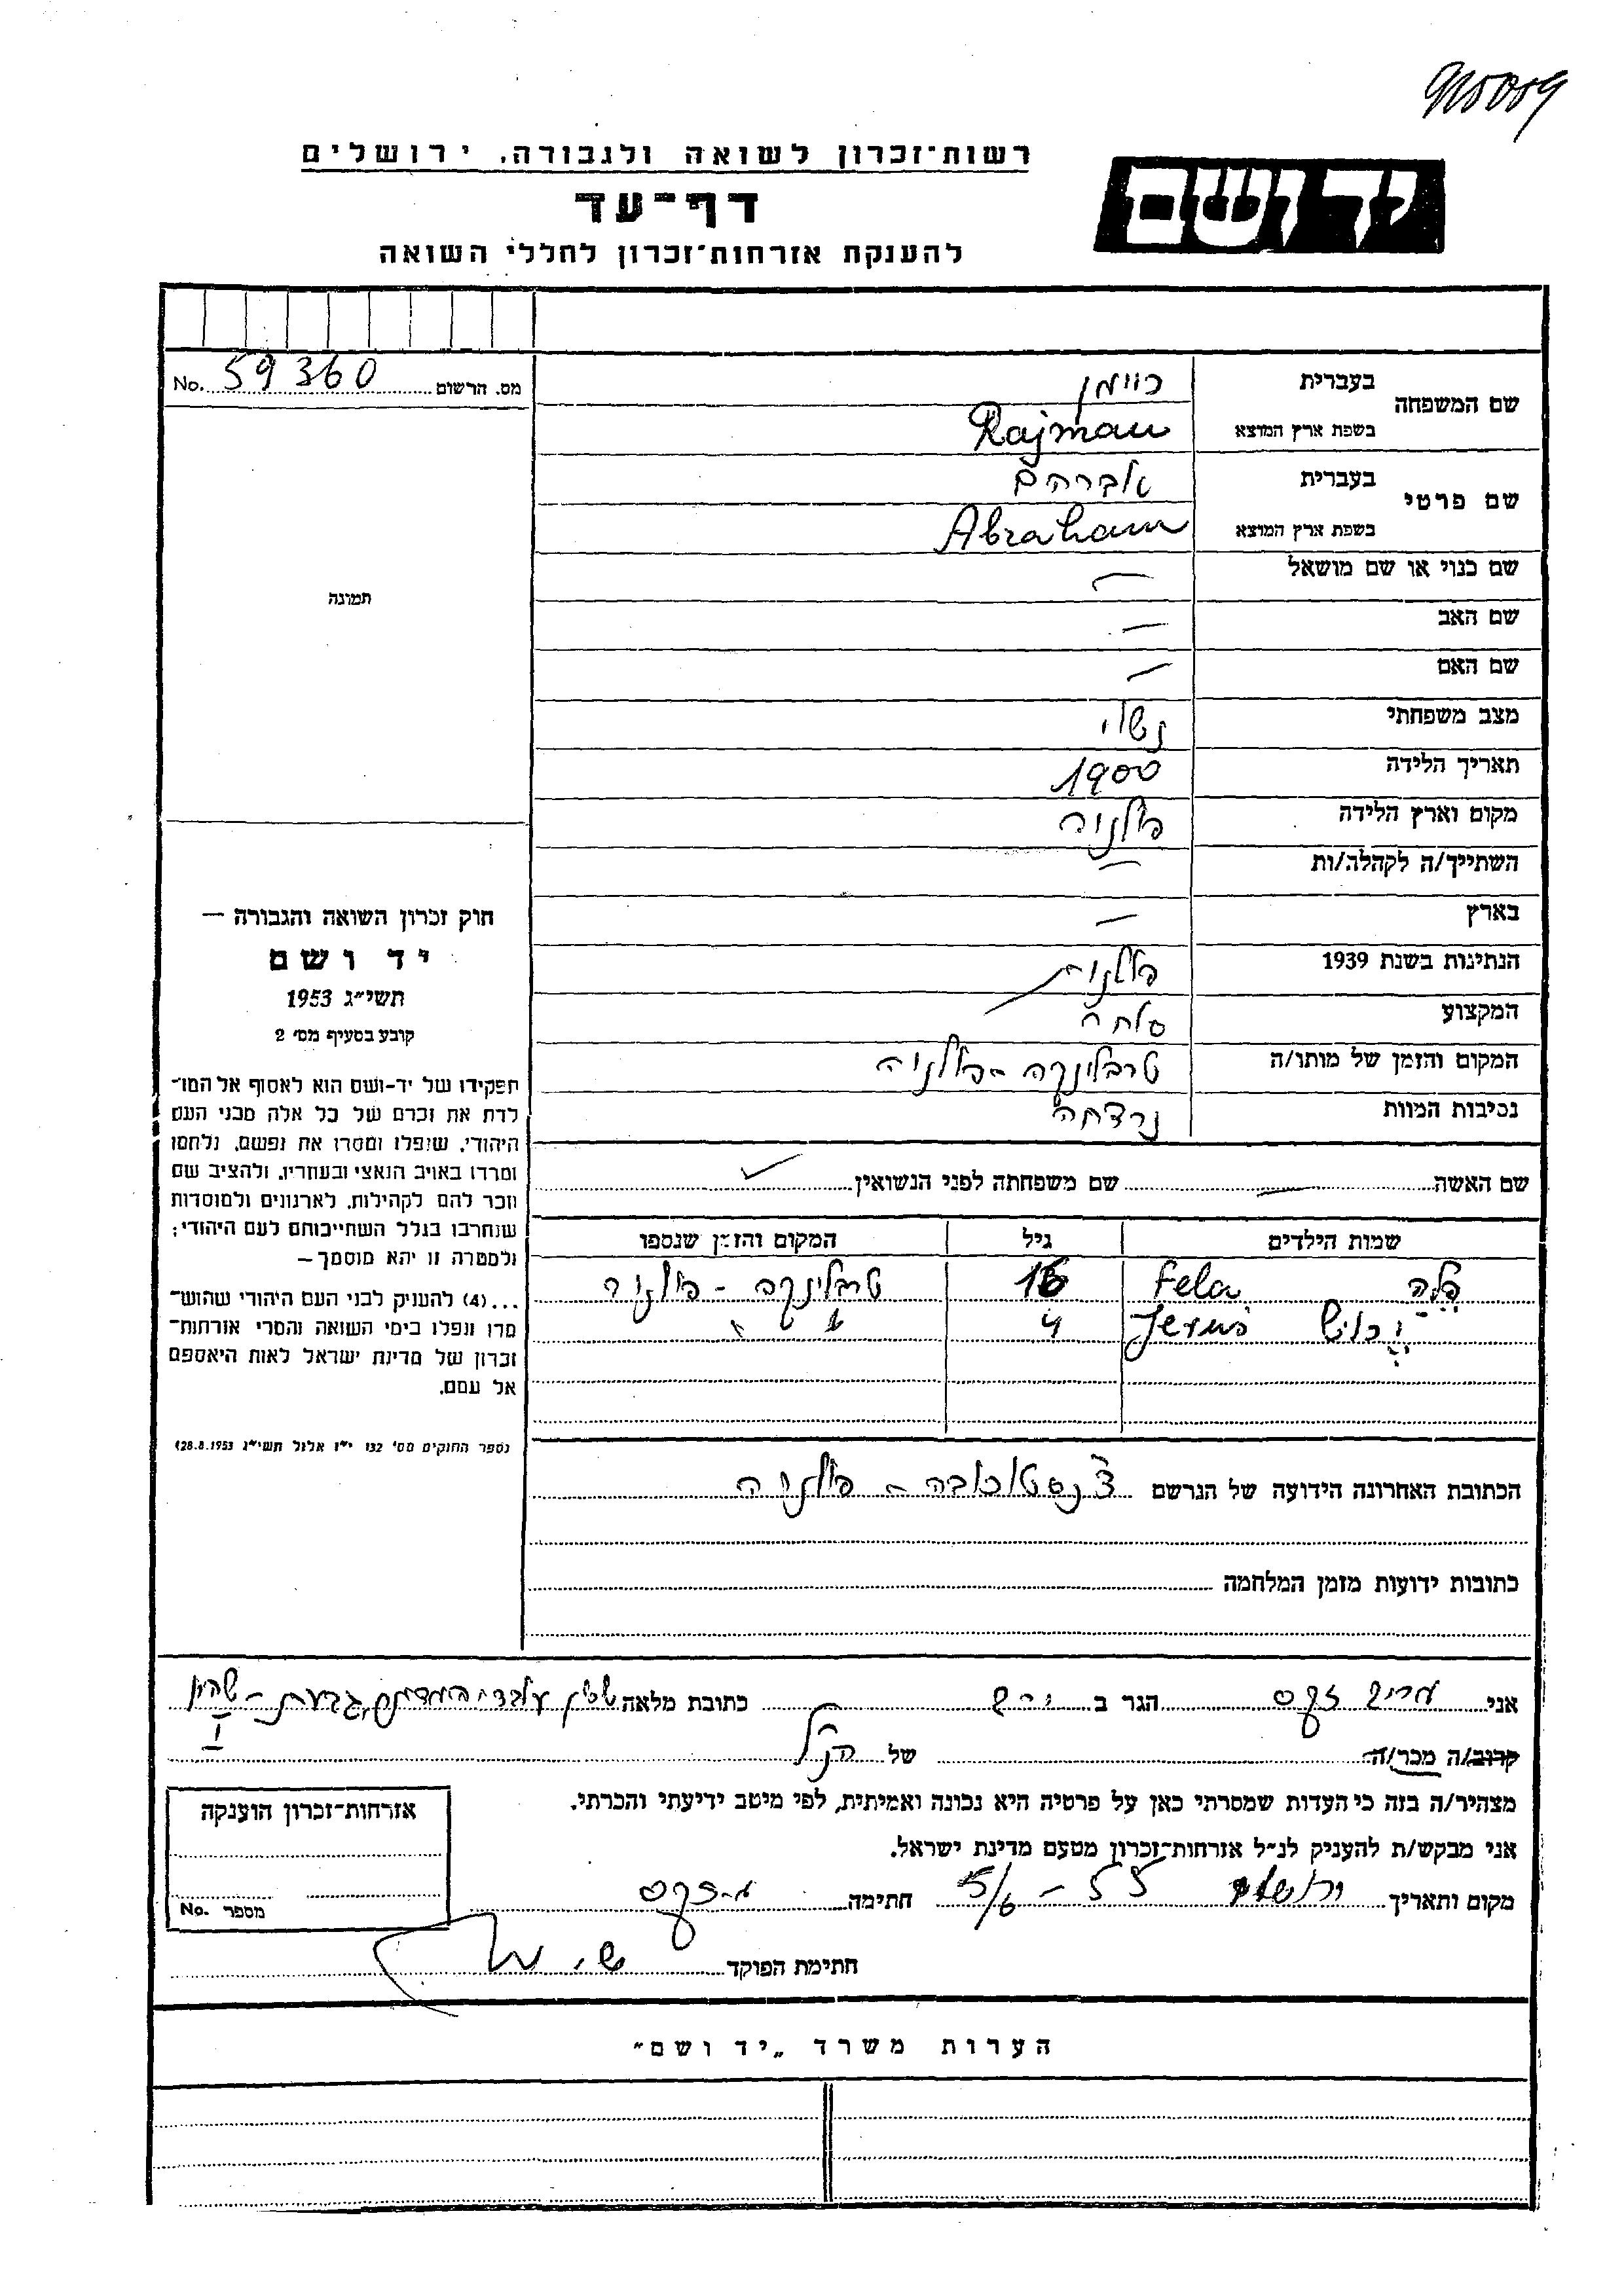 910009
רשות־זכרון לשואה ולגבורה, ירושלים
יד ושם
דף־עד
להענקת אזרחות־זכרון לחללי השואה
מס. הרשום 59360 No.
תמונה
שם המשפחה
בעברית ריימן
בשפת ארץ המוצא Rajman
שם פרטי
בעברית אברהם
בשפת ארץ המוצא Abraham
שם כנוי או שם מושאל —
שם האב —
שם האם —
מצב משפחתי נשוי
תאריך הלידה 1900
מקום וארץ הלידה פולניה
השתייך/ה לקהלה/ות —
בארץ —
הנתינות בשנת 1939 פולנית
המקצוע
המקום והזמן של מותו/ה טרבלינקה - פולניה
נסיבות המוות נרצחה
שם האשה — שם משפחתה לפני הנשואין
שמות הילדים גיל המקום והזמן שנספו
פלה Fela 16 טרבלינקה - פולניה
Jeruś 4 " "
חוק זכרון השואה והגבורה —
יד ושם
תשי״ג 1953
קובע בסעיף מס׳ 2
תפקידו של יד-ושם הוא לאסוף אל המו־
לדת את זכרם של כל אלה מבני העם
היהודי, שנפלו ומסרו את נפשם, נלחמו
ומרדו באויב הנאצי ובעוזריו, ולהציב שם
וזכר להם לקהילות, לארגונים ולמוסדות
שנחרבו בגלל השתייכותם לעם היהודי;
ולמטרה זו יהא מוסמך—
...(4) להעניק לבני העם היהודי שהוש־
מדו ונפלו בימי השואה והמרי אזרחות־
זכרון של מדינת ישראל לאות היאספם
אל עמם.
(ספר החוקים מס׳ 132 י״ז אלול תשי״ג 28.8.1953)
הכתובת האחרונה הידועה של הנרשם צ׳נסטוכובה - פולניה
כתובות ידועות מזמן המלחמה
אני הגר ב כתובת מלאה שכון עובדי המדינה, גבעת-
קרוב/ה מכר/ה של הנ״ל
מצהיר/ה בזה כי העדות שמסרתי כאן על פרטיה היא נכונה ואמיתית, לפי מיטב ידיעתי והכרתי.
אני מבקש/ת להעניק לנ״ל אזרחות־זכרון מטעם מדינת ישראל.
מקום ותאריך ירושלים 5/6 - 55 חתימה
אזרחות־זכרון הוענקה
מספר No.
חתימת הפוקד
הערות משרד „יד ושם״